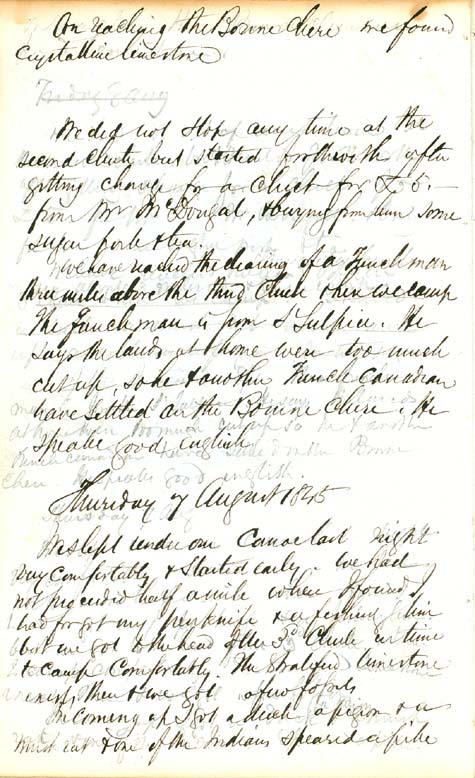 On reaching the Bonne Chere we found
Crystalline limestone
Friday 8 Aug
We did not stop any time at the
second Chute but started forthwith after
getting change for a check for £5.—
from Mr McDougal, & buying from him some
sugar pork & tea.
We have reached the clearing of a Frenchman
three miles above the third Chute & here we camp
The Frenchman is from St Sulpice. He
says the lands at home were too much
cut up, so he & another French Canadian
have settled on the Bonne Chere. He
speaks good english
Thursday 7 August 1845
We slept under our Canoe last night
very comfortably & started early. We had
not proceeded half a mile when I found I
had forgot my penknife & a fishing line
but we got to the head of the 3d Chute in time
to camp comfortably. The stratified limestone
exists there & we got a few fossils
In coming up I got a duck a pigeon & a
musk rat & one of the Indians speared a pike